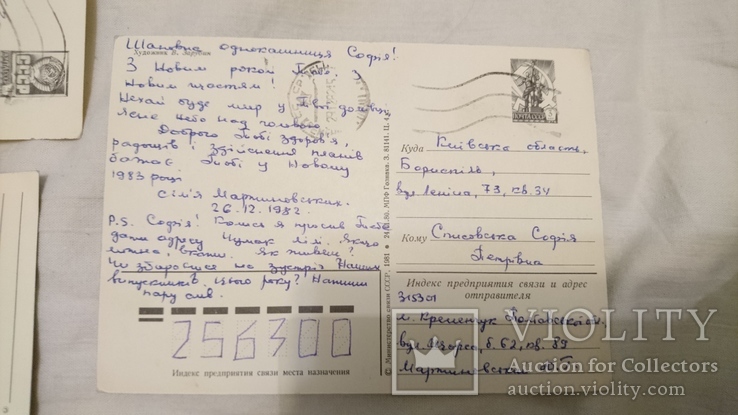 Художник В. Зарубин
Шановна однокашниця Софія!
З Новим роком Тебе, з
Новим щастям!
Нехай буде мир у Твої домівці,
Ясне небо над головою.
Доброго Тобі здоров'я,
радощів і здійснення планів
бажає Тобі у Новому
1983 році
сім'я Мартиновських.
26.12.1982.
P.S. Софія! Колись я просив Тебе
дати адресу Чумак Лілі. Якщо
можна, вкажи. Як живеш?
Чи збираєшся на зустріч наших
випускників цього року? Напиши
пару слів.
256300
Индекс предприятия связи места назначения
© Министерство связи СССР, 1981 • МПФ Гознака. З. 81141. Ц. 4 к.
ПОЧТА СССР
Куда Київська область.
Бориспіль,
вул Леніна, 73, кв. 34
Кому Списовська Софія
Петрівна
Индекс предприятия связи и адрес
отправителя
315301
м. Кременчук Полтавської обл.
вул. Маркса, б. 62, кв. 89
Мартиновський
СССР
VIOLITY
Auction for Collectors
auction.violity.com